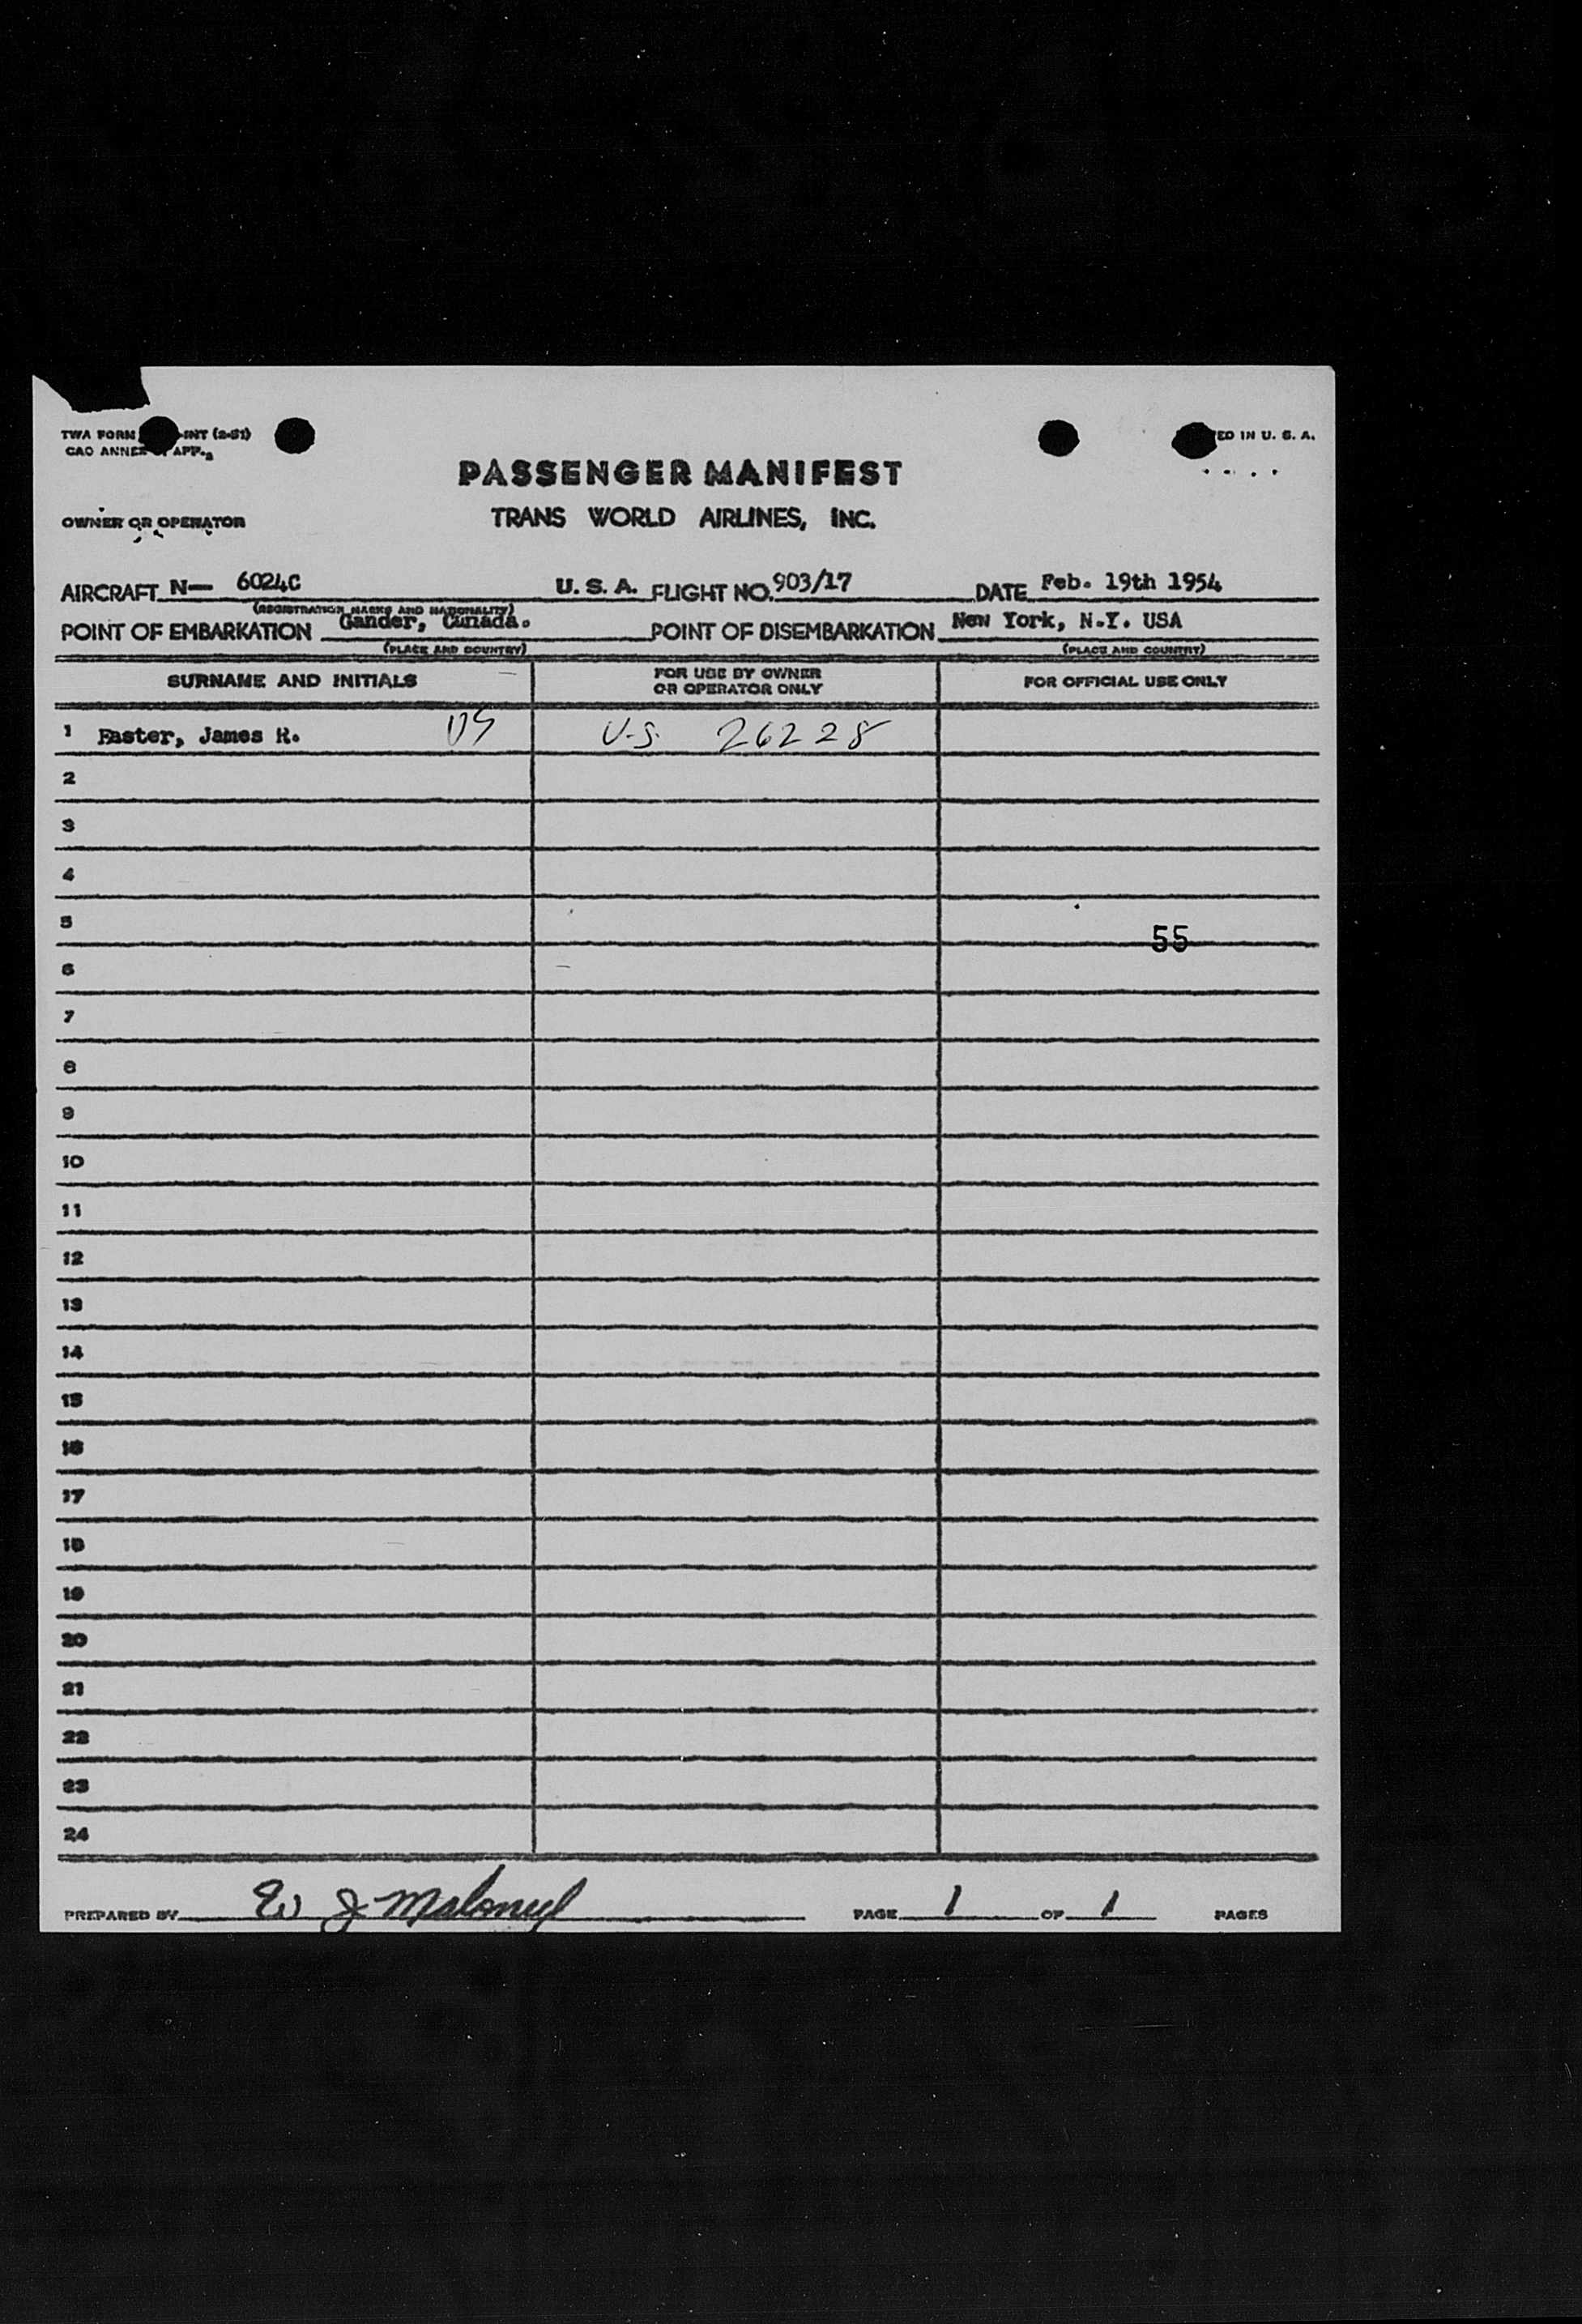 TWA FORM INT (2-51)
CAO ANNEX APP.
ED IN U. S. A.
PASSENGER MANIFEST
OWNER OR OPERATOR TRANS WORLD AIRLINES, INC.
AIRCRAFT N— 6024C U. S. A. FLIGHT NO. 903/17 DATE Feb. 19th 1954
(REGISTRATION MARKS AND NATIONALITY)
POINT OF EMBARKATION Gander, Canada. POINT OF DISEMBARKATION New York, N.Y. USA
(PLACE AND COUNTRY) (PLACE AND COUNTRY)
SURNAME AND INITIALS FOR USE BY OWNER OR OPERATOR ONLY FOR OFFICIAL USE ONLY
1 James R. U.S. 26228
2
3
4
5
55
6
7
8
9
10
11
12
13
14
15
16
17
18
19
20
21
22
23
24
PREPARED BY W J Maloney PAGE 1 OF 1 PAGES